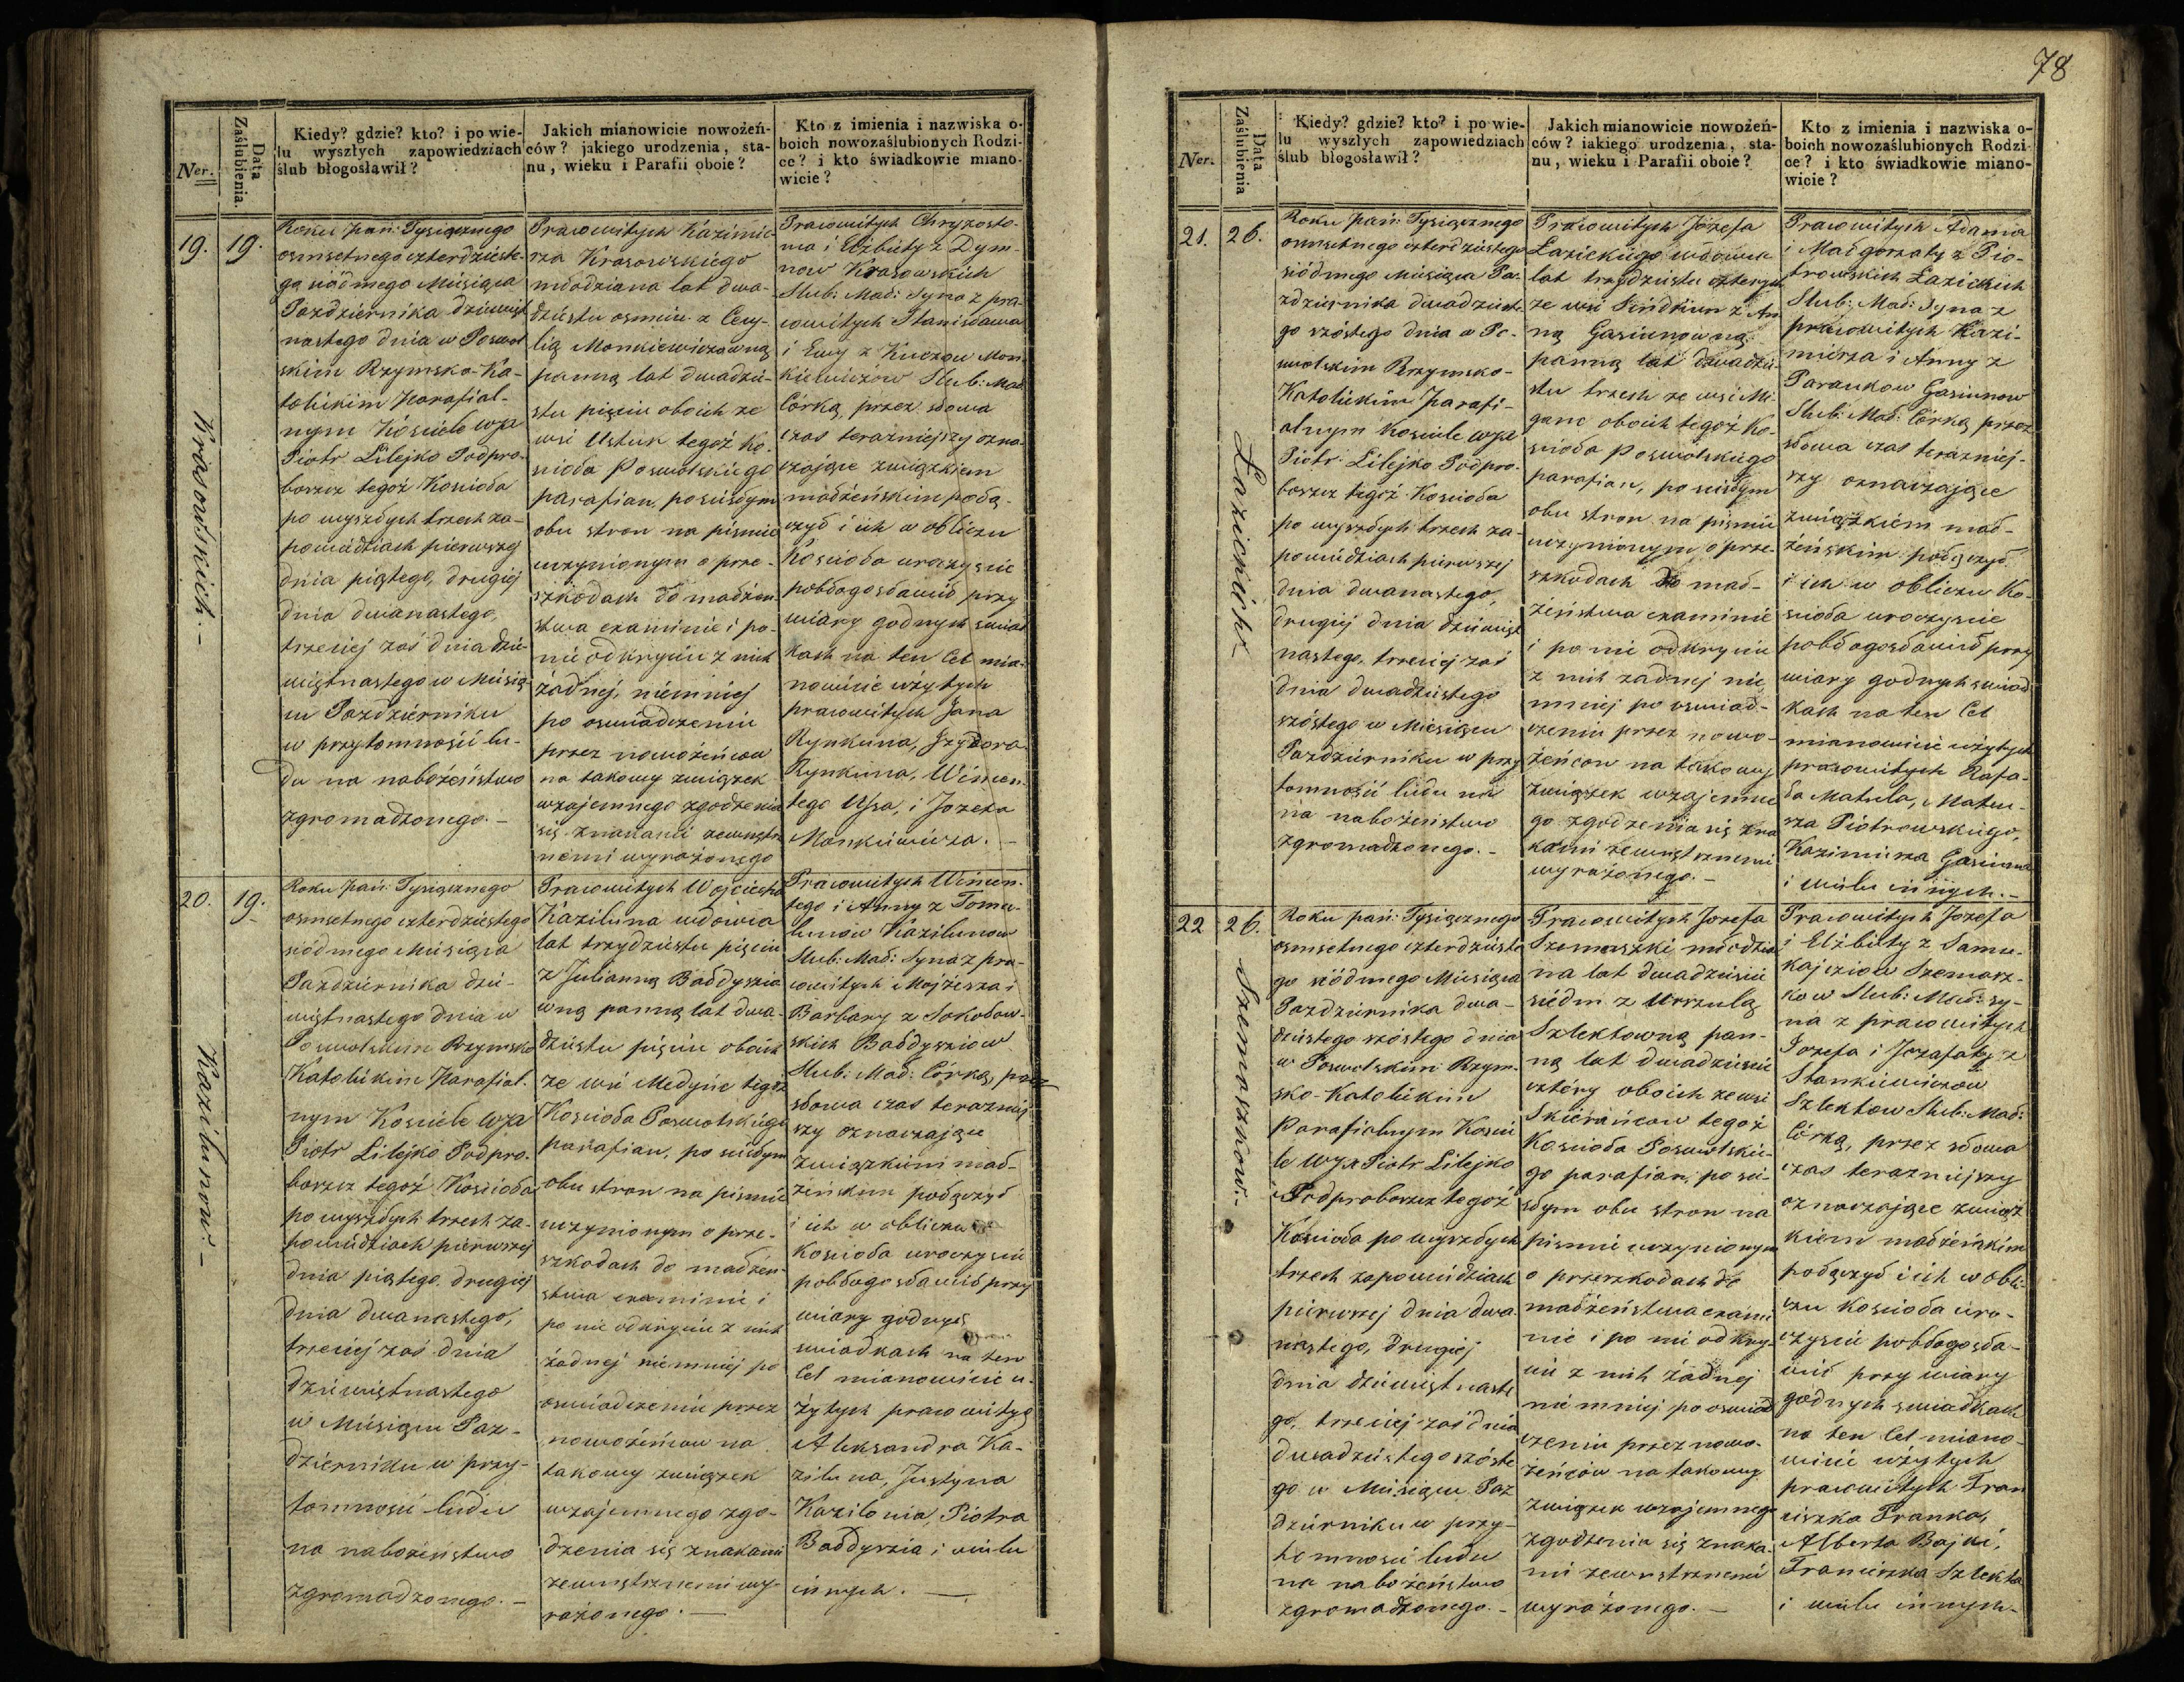 78
Ner.
Data Zaślubienia.
Kiedy? gdzie? kto? i po wie-
lu wyszłych zapowiedziach
ślub błogosławił?
Jakich mianowicie nowożeń-
ców? jakiego urodzenia, sta-
nu, wieku i Parafii oboie?
Kto z imienia i nazwiska o-
boich nowozaślubionych Rodzi-
ce? i kto świadkowie miano-
wicie?
19.
19.
Krasowskich.-
Roku pań: Tysiącznego
osmsetnego czterdzieste-
go siódmego Miesiąca
Pazdziernika dziewięt
nastego dnia w Poswol
skim Rzymsko-Ka-
tolickim Parafial-
nym Kościele wJX
Piotr Lilejko Podpro-
boszcz tegoż Kościoła
po wyszłych trzech za-
powiedziach pierwszej
dnia piątego, drugiej
dnia dwanastego,
trzeciej zaś dnia dzie-
więtnastego w Miesią-
cu Pazdzierniku
w przytomności lu-
du na nabożeństwo
zgromadzonego.-
Pracowitych Kazimie-
rza Krasowskiego
młodziana lat dwa-
dziestu osmiu z Cecy-
lią Monkiewiczowną
panną lat dwadzie-
stu pięciu oboich ze
wsi Ustuk tegoż Ko-
scioła Poswolskiego
parafian, po scisłym
obu stron na pismie
uczynionym o prze-
szkodach do małżen-
stwa examinie i po-
nie odkryciu z nich
żadnej, niemniej
po oswiadczeniu
przez nowożeńcow
na takowy związek
wzajemnego zgodzenia
się znakami zewnętrz
nemi wyrażonego
Pracowitych Chryzosto-
ma i Elżbiety z Dym-
now Krasowskich
Slub: Mał: Syna z pra-
cowitych Stanisława
i Ewy z Kuczow Mon-
kiewiczow Slub: Mał
Córką, przez słowa
czas terazniejszy ozna-
czające związkiem
małżeńskim połą-
czył i ich w obliczu
Kościoła uroczyscie
pobłogosławił przy
wiary godnych swiad
kach na ten Cel mia-
nowicie użytych
pracowitych Jana
Rynkuna, Jzydora
Rynkuna, Wincen-
tego Ussa, i Jozefa
Monkiewicza.-
20.
19.
Kazilunow.-
Roku pań: Tysiącznego
osmsetnego czterdziestego
siódmego Miesiąca
Pazdziernika dzie-
więtnastego dnia w
Poswolskim Rzymsko
Katolickim Parafial-
nym Kosciele wJX
Piotr Lilejko Podpro-
boszcz tegoż Kościoła
po wyszłych trzech za-
powiedziach pierwszej
dnia piątego, drugiej
dnia dwanastego,
trzeciej zaś dnia
dziewiętnastego
w Miesiącu Paz-
dzierniku w przy-
tomnosci ludu
na nabożeństwo
zgromadzonego.-
Pracowitych Wojciecha
Kaziluna wdowca
lat trzydziestu pięciu
z Julianną Bałdyszia
wną panną lat dwa-
dziestu pięciu oboich
ze wsi Medyńe tegoż
Kościoła Poswolskiego
parafian, po scisłym
obu stron na pismie
uczynionym o prze-
szkodach do małżen-
stwa examinie i
po nie odkryciu z nich
żadnej niemniej po
oswiadczeniu przez
nowożeńcow na
takowy związek
wzajemnego zgo-
dzenia się znakami
zewnętrznemi wy-
rażonego.-
Pracowitych Wincen-
tego i Anny z Tomu-
lunow Kazilunow
Slub: Mał: Syna z pra-
cowitych Mojżesza i
Barbary z Sokołow-
skich Bałdysziow
Slub: Mał: Córką, przez
słowa czas terazniej
szy oznaczające
związkiem mał-
żeńskim połączył
i ich w obliczu
Kościoła uroczyscie
pobłogosławił przy
wiary godnych
swiadkach na ten
Cel mianowicie u-
żytych pracowitych
Aleksandra Ka-
ziluna, Justyna
Kazilonia, Piotra
Bałdyszia i wielu
innych.-
Ner.
Data Zaślubienia
Kiedy? gdzie? kto? i po wie-
lu wyszłych zapowiedziach
ślub błogosławił?
Jakich mianowicie nowożeń-
ców? iakiego urodzenia, sta-
nu, wieku i Parafii oboie?
Kto z imienia i nazwiska o-
boich nowozaślubionych Rodzi-
ce? i kto świadkowie miano-
wicie?
21.
26.
Łazickich.-
Roku pań: Tysiącznego
osmsetnego czterdziestego
siódmego Miesiąca Pa-
zdziernika dwadzieste-
go szóstego dnia w Po-
swolskim Rzymsko-
Katolickim Parafi-
alnym Kosciele wJX
Piotr Lilejko Podpro-
boszcz tegoż Kościoła
po wyszłych trzech za-
powiedziach pierwszej
dnia dwanastego,
drugiej dnia dziewięt
nastego, trzeciej zaś
dnia dwadziestego
szóstego w Miesiącu
Pazdzierniku w przy
tomności ludu na
na nabożeństwo
zgromadzonego.-
Pracowitych Józefa
Łazickiego wdowca
lat trzydziestu czterech
ze wsi Sindkun z An
ną Gasiunowną
panną lat dwadzie-
stu trzech ze wsi Mi-
gane oboich tegoż Ko-
scioła Poswolskiego
parafian, po scisłym
obu stron na pismie
uczynionym o prze-
szkodach do mał-
żeństwa examinie
i po nie odkryciu
z nich żadnej nie
mniej po oswiad-
czeniu przez nowo-
żeńcow na takowy
związek wzajemne
go zgodzenia się zna
kami zewnętrznemi
wyrażonego.-
Pracowitych Adama
i Małgorzaty z Pio-
trowskich Łazickich
Slub: Mał: Syna z
pracowitych Kazi-
mierza i Anny z
Paraukow Gasiunow
Slub: Mał: Córką, przez
słowa czas terazniej-
szy oznaczające
związkiem mał-
żeńskim połączył
i ich w obliczu Ko-
scioła uroczyscie
pobłogosławił przy
wiary godnych swiad
kach na ten Cel
mianowicie użytych
pracowitych Rafa-
ła Matula, Mateu-
sza Piotrowskiego,
Kazimierza Gasiuna
i wielu innych.-
22
26.
Szemaszkow.-
Roku pań: Tysiącznego
osmsetnego czterdzieste
go siódmego Miesiąca
Pazdziernika dwa-
dziestego szóstego dnia
w Poswolskim Rzym-
sko-Katolickim
Parafialnym Koscie
le wJX Piotr Lilejko
Podproboszcz tegoż
Kościoła po wyszłych
trzech zapowiedziach
pierwszej dnia dwa-
nastego, drugiej
dnia dziewiętnaste
go, trzeciej zaś dnia
dwadziestego szóste
go w Miesiącu Paz
dzierniku w przy-
tomnosci ludu
na nabożeństwo
zgromadzonego.-
Pracowitych Jozefa
Szemaszki młodzia
na lat dwadziescie
siedm z Urszulą
Szlektowną pan-
ną lat dwadziescie
cztéry oboich ze wsi
Skierańcow tegoż
Kościoła Poswolskie-
go parafian, po sci-
słym obu stron na
pismie uczynionym
o przeszkodach do
małżeństwa exami
nie i po nie odkry-
ciu z nich żadnej
nie mniej po oswiad
czeniu przez nowo-
żeńców na takowy
związek wzajemnego
zgodzenia się znaka-
mi zewnętrznemi
wyrażonego.-
Pracowitych Jozefa
i Elżbiety z Samu-
kajcziow Szemasz-
kow Slub: Mał: sy-
na z pracowitych
Jozefa i Jozafaty z
Stankiewiczow
Szlektow Slub: Mał:
Córką, przez słowa
czas terazniejszy
oznaczające związ
kiem małżeńskim
połączył i ich w obli-
czu Kościoła uro-
czyscie pobłogosła-
wił przy wiary
godnych swiadkach
na ten Cel miano-
wicie użytych
pracowitych Fran
ciszka Pranka,
Alberta Bajki,
Franciszka Szlekta
i wielu innych.-